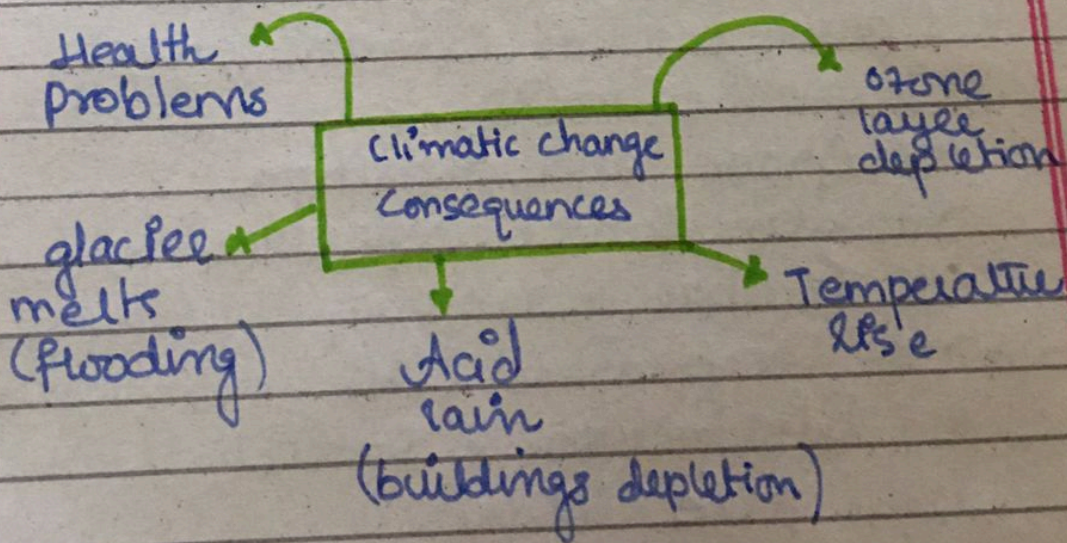 Health
problems
Climatic change
consequences
ozone
layer
depletion
glacier
melts
(flooding)
Acid
rain
(buildings depletion)
Temperature
rise